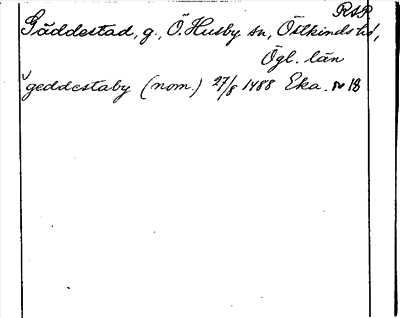 RSP
Gäddestad, g., Ö. Husby sn, Östkinds hd,
Ögl. län
geddestaby (nom.) 27/8 1488 Eka. nr 18